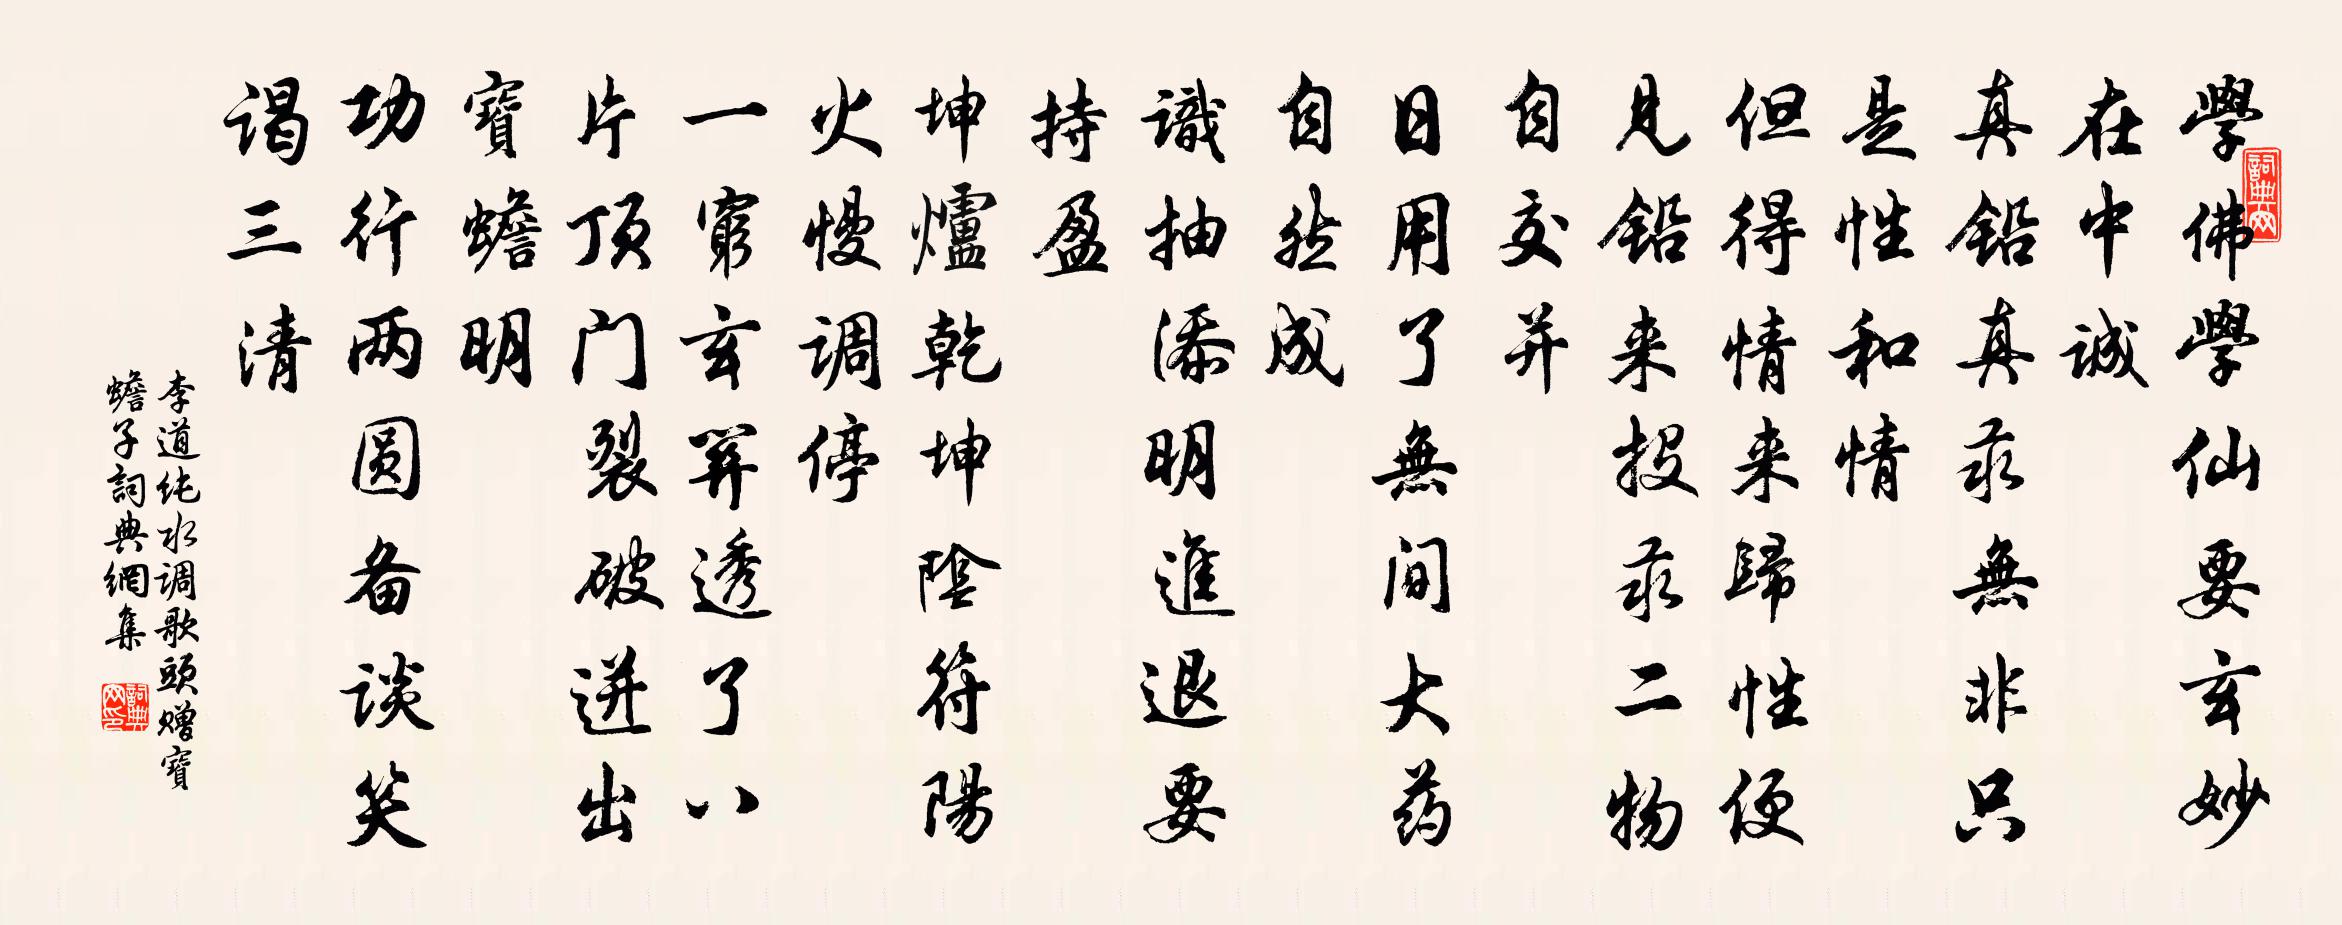 學佛學仙要玄妙
在中诚
真铅真汞無非只
是性和情
但得情来歸性便
見铅来投汞二物
自交并
日用了無间大药
自然成
識抽添明進退要
持盈
坤爐乾坤陰符陽
火慢调停
一窮玄關透了八
片顶门裂破迸出
寶蟾明
功行两圆备谈笑
谒三清
李道纯水调歌頭赠寶
蟾子詞典網集
詞典网
詞典网印